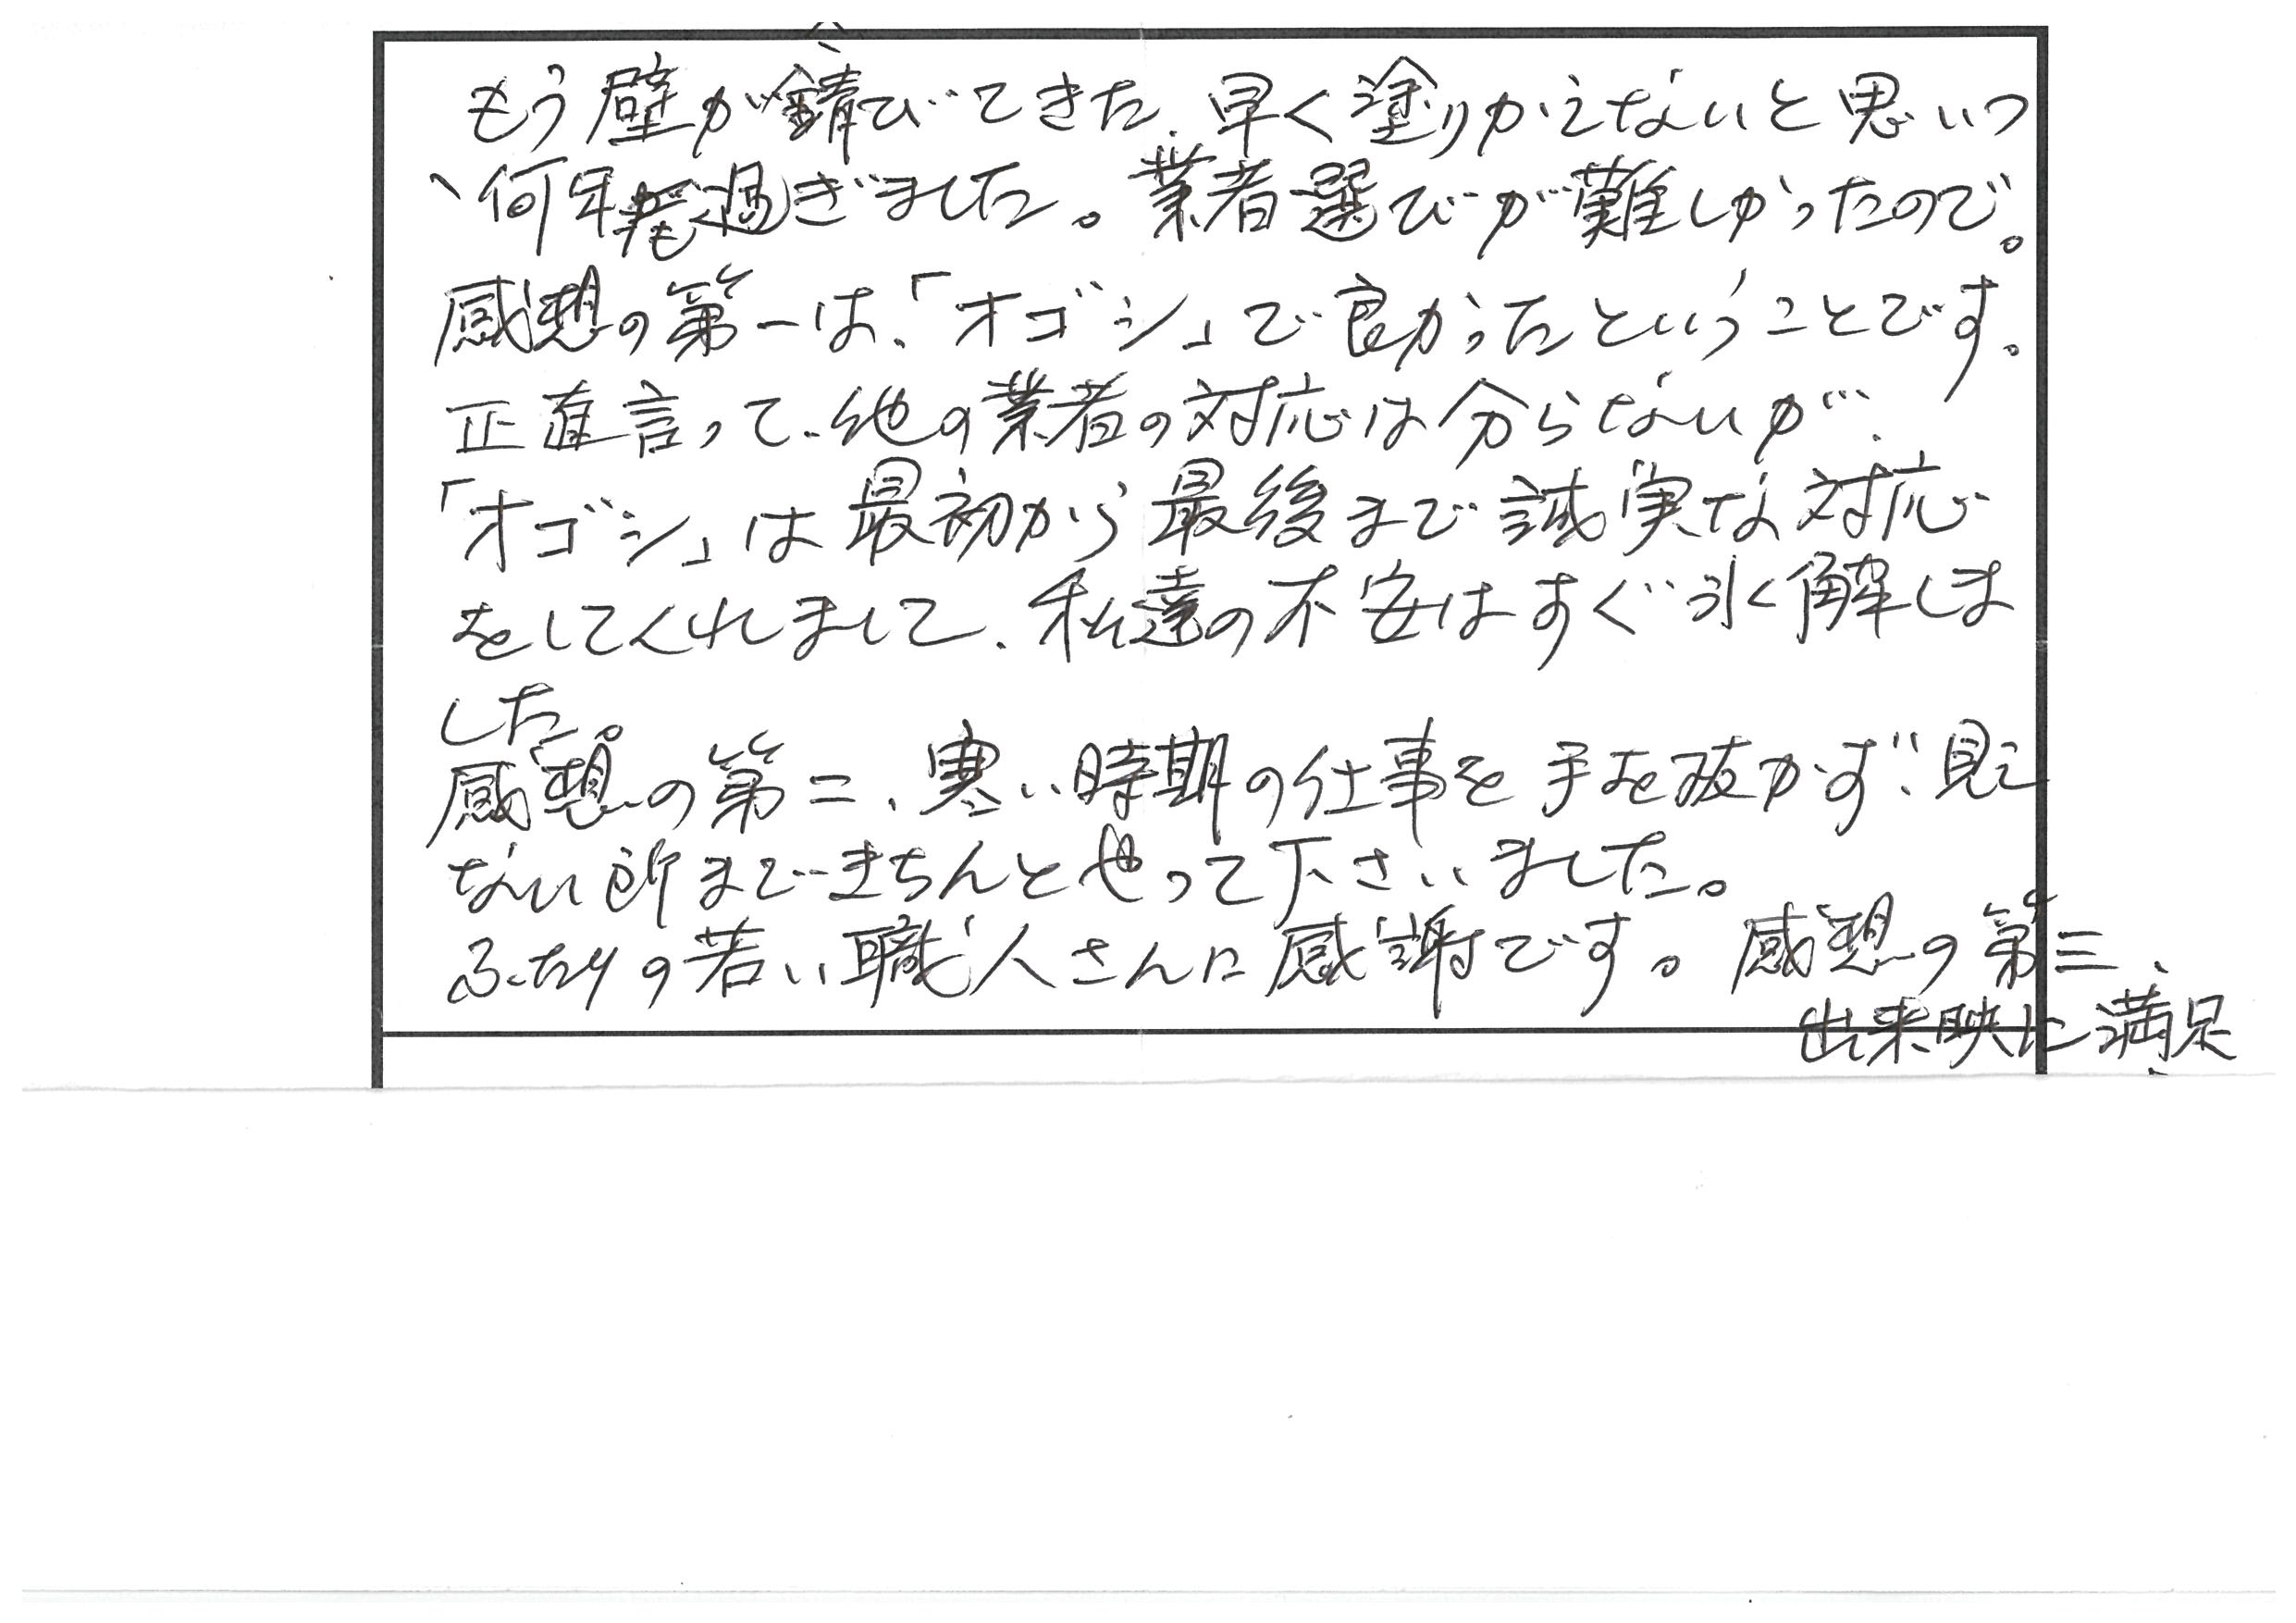 もう壁が錆びてきた、早く塗りかえないと思いつ
ゝ何年も過ぎました。業者選びが難しかったので。
感想の第一は、「オゴシ」で良かったということです。
正直言って、他の業者の対応は分らないが、
「オゴシ」は最初から最後まで誠実な対応
をしてくれまして、私達の不安はすぐ氷解しま
した。
感想の第二、寒い時期の仕事を手を抜かず、見え
ない所まできちんとやって下さいました。
ふたりの若い職人さんに感謝です。感想の第三、
出来映に満足